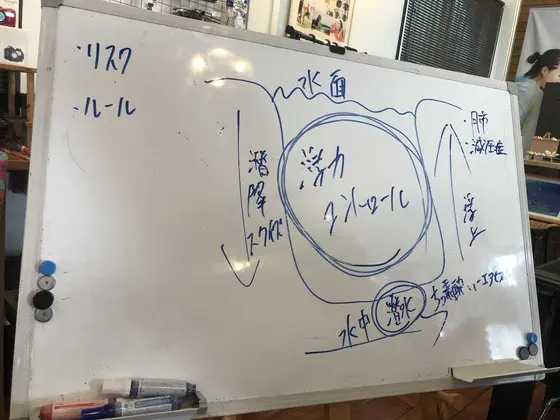 ・リスク
・ルール
水面
浮力
コントロール
潜降
スクイズ
・肺
・減圧症
浮上
水中
潜水
ちっ素酔い